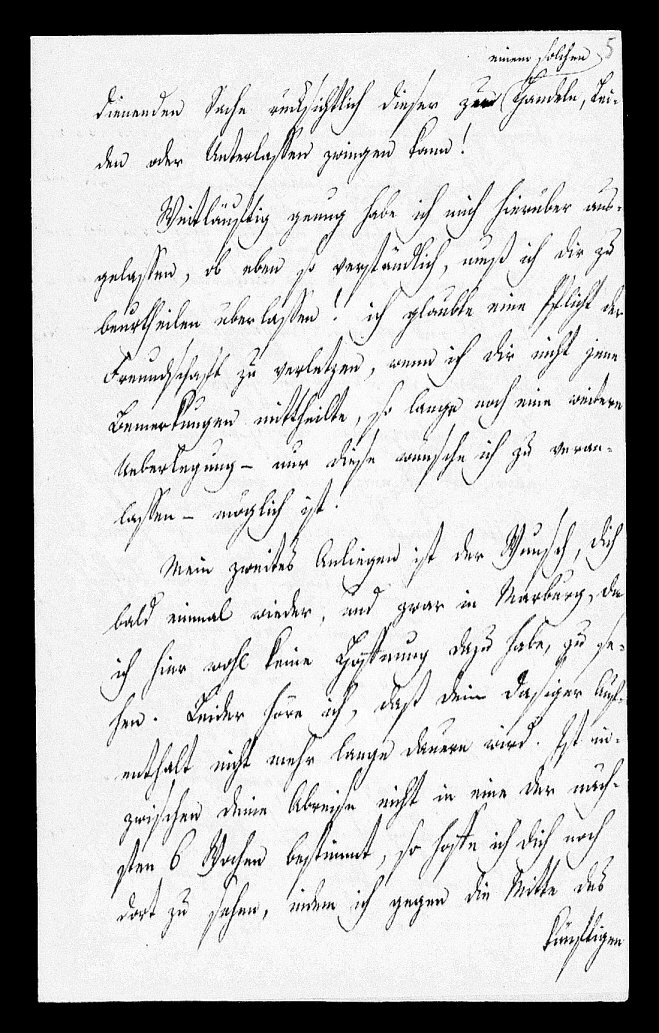 5
einem solchen
dienenden Sache rücksichtlich dieser zu Handeln, Lei-
den oder Unterlassen zwingen kann!
Weitläuftig genug habe ich mich hierüber aus-
gelassen, ob eben so verständlich, muß ich dir zu
beurtheilen überlassen! ich glaubte eine Pflicht der
Freundschaft zu verletzen, wenn ich dir nicht jene
Bemerkungen mittheilte, so lange noch eine weitere
Ueberlegung – nur diese wünsche ich zu veran-
lassen – möglich ist.
Mein zweites Anliegen ist der Wunsch, dich
bald einmal wieder, und zwar in Marburg, da
ich hier wohl keine Hoffnung dazu habe, zu se-
hen. Leider höre ich, daß dein dasiger Auf-
enthalt nicht mehr lange dauern wird. Ist in-
zwischen deine Abreise nicht in eine der näch-
sten 6 Wochen bestimmt, so hoffe ich dich noch
dort zu sehen, indem ich gegen die Mitte des
künftigen